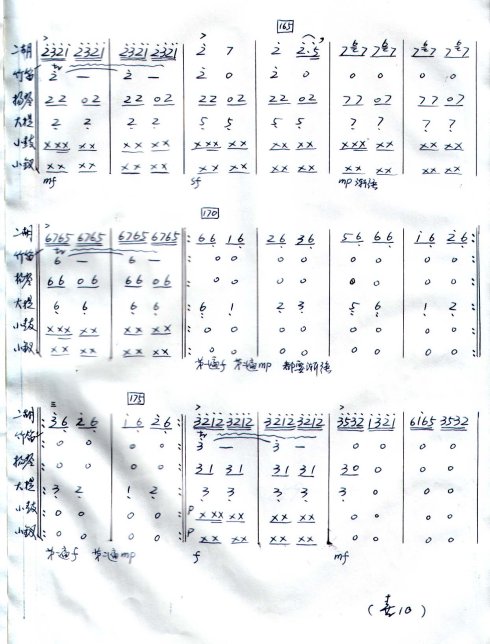 165
二胡 2321 2321 2321 2321 2 7 2 2·5
竹笛 2 — 2 — 2 0 2 0 0 0 0 0
扬琴 22 02 22 02 22 02 22 02 77 07 77 07
大提 2 2 2 2 5 5 5 5 7 7 7 7
小鼓 xxx xx xx xx xxx xx xx xx xxx xx xx xx
小钹 xx xx xx xx xx xx xx xx xx xx xx xx
mf sf mp 渐强
170
二胡 6765 6765 6765 6765 66 16 26 36 56 66 16 26
竹笛 6 — 6 — 0 0 0 0 0 0 0 0
扬琴 66 06 66 06 0 0 0 0 0 0 0 0
大提 6 6 6 6 6 1 2 3 5 6 1 2
小鼓 xxx xx xx xx 0 0 0 0 0 0 0 0
小钹 xx xx xx xx 0 0 0 0 0 0 0 0
第一遍f 第二遍mp 都要渐强
175
二胡 36 26 16 26 3212 3212 3212 3212 3532 1321 6165 3532
竹笛 0 0 0 0 3 — 3 — 0 0 0 0
扬琴 0 0 0 0 31 31 31 31 30 0 0 0
大提 3 2 1 2 3 3 3 3 3 0 0 0
小鼓 0 0 0 0 p xxx xx xx xx 0 0 0 0
小钹 0 0 0 0 p xx xx xx xx 0 0 0 0
第一遍f 第二遍mp f mf